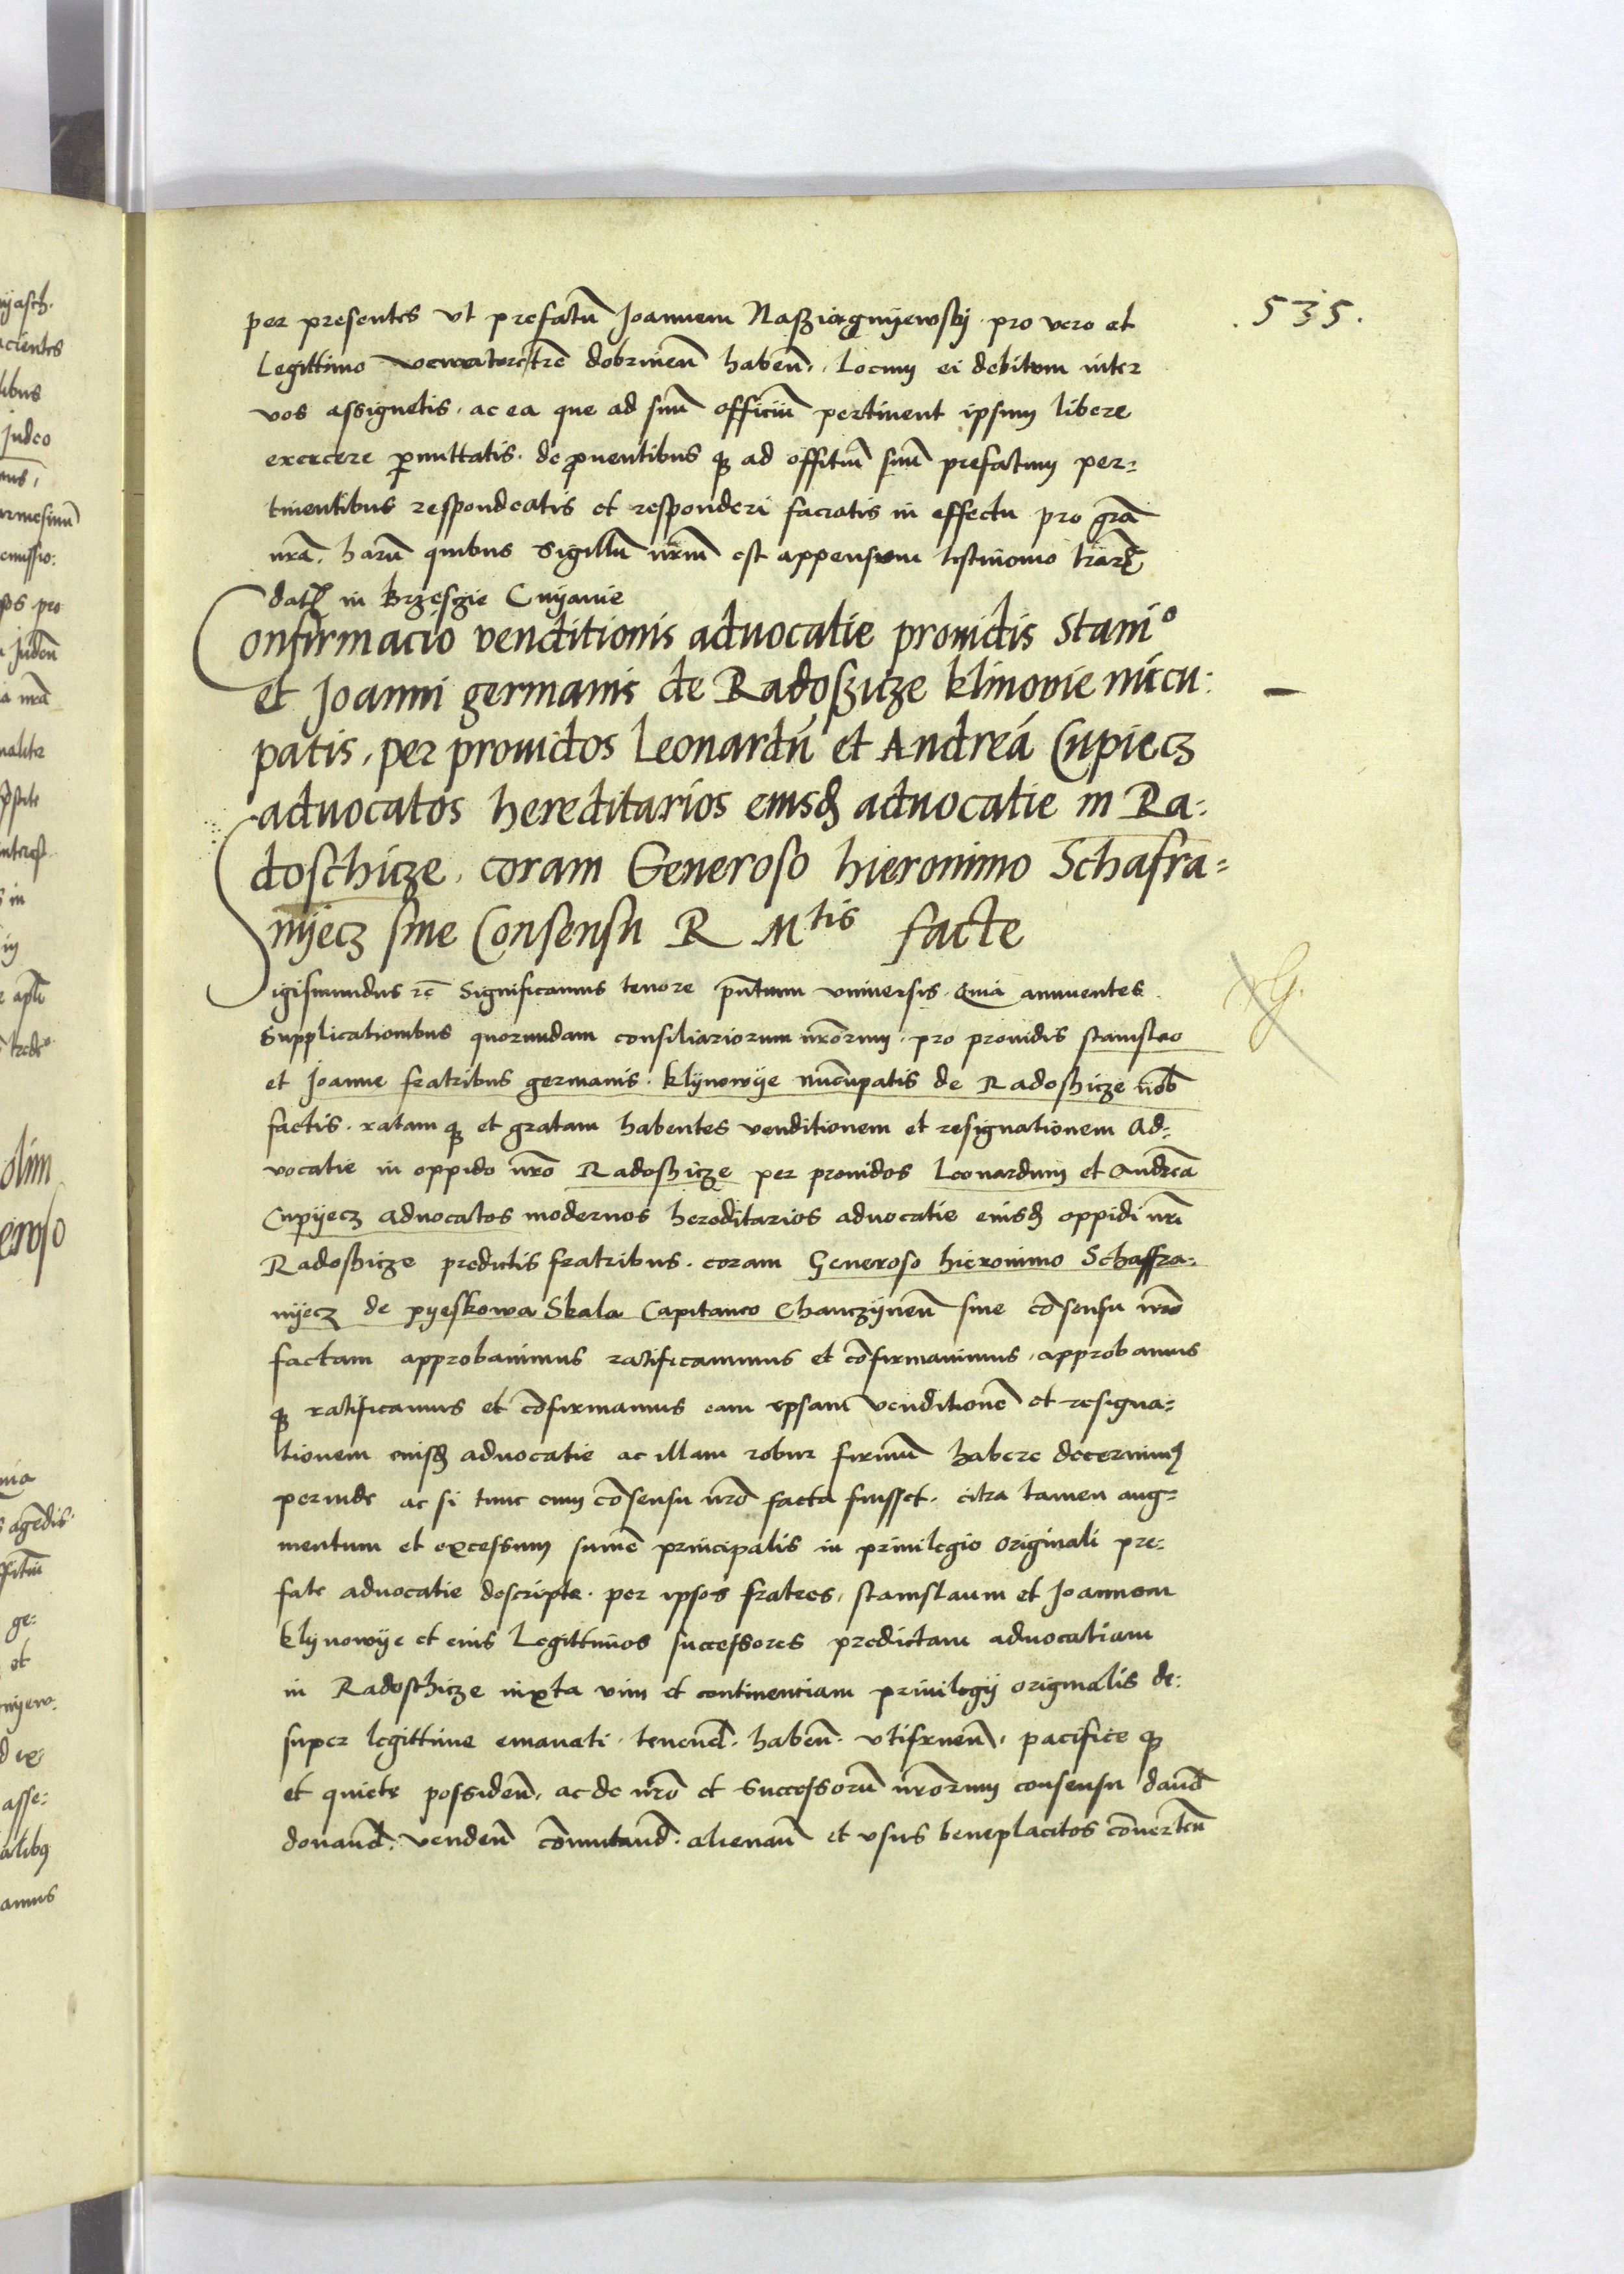 .535.
per presentes vt prefatū Joannem Naßiągnyewsky . pro vero et
Legittimo venatore trē dobrineñ habeñ. Locum ei debitum inter
vos assignetis . ac ea que ad suū officiū pertinent ipsum libere
exercere p̱mittatis . de ꝓuentibus qꝫ ad offitiū suū prefatum per=
tinentibus respondeatis et responderi faciatis in effectu pro grā
nrā. harū quibus Sigillū nrm̄ est appensum testimonio lrārꝫ
datꝫ in Brzesgie Cuyauie
Confirmacio venditionis aduocatie prouidis Stanio
et Joanni germanis de Radoßicze klinovie nūcu:
patis, per prouidos Leonardū et Andreā Cupiecz
aduocatos hereditarios eiusdꝫ aduocatie in Ra:
doschicze, coram Generoso hieronimo Schafra=
nyecz sine Consensu R Mtis facte
Sigismundus rc̄ Significamus tenore pn̄tium vniuersis. Quia annuentes
Supplicationibus quorundam consiliariorum nrōrum . pro prouidis stanislao
et Joanne fratribus germanis . klynowye nūcupatis de Radoshicze nob̄
factis . ratam qꝫ et gratam habentes venditionem et resignationem Ad=
vocatie in oppido nrō Radoshicze per prouidos Leonardum et Andreā
Cupyecz aduocatos modernos hereditarios aduocatie eiusdꝫ oppidi nrī
Radoshicze predictis fratribus . coram Generoso hieronimo Schaffra=
nyecz de pyeskowa Skala Capitaneo Chanczyneñ sine cōsensu nrō
factam approbauimus ratificauimus et cōfirmauimus, approbamus
qꝫ ratificamus et cōfirmamus eam ipsam venditionē et resigna=
tionem eiusdꝫ aduocatie ac illam robur firmū habere decernimꝰ
perinde ac si tunc cum cōsensu nrō facta fuisset. citra tamen aug=
mentum et excessum sum̄e principalis in priuilegio originali pre=
fate aduocatie descripte . per ipsos fratres, stanislaum et Joannem
klynowye et eius Legittimos successores predictam aduocatiam
in Radoschicze iuxta vim et continentiam priuilegij originalis de:
super legittime emanati . tenend̄ . habeñ . vtifrueñ, pacifice qꝫ
et quiete possideñ, ac de nrō et Successorū nrōrum consensu dand̄
donand̄. vendeñ cōmutand̄ . alienañ et vsus beneplacitos cōuerteñ